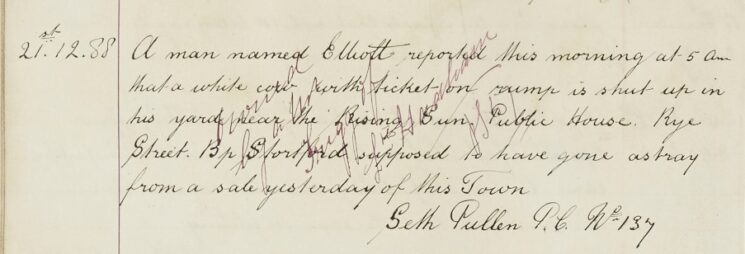 21st.12.88 A man named Elliott reported this morning at 5 am
that a white cow with ticket on rump is shut up in
his yard near the Rising Sun. Public House. Rye
Street. Bp Stortford supposed to have gone astray
from a sale yesterday of this Town
Seth Pullen P.C. No 137
owned
by a Mr
of